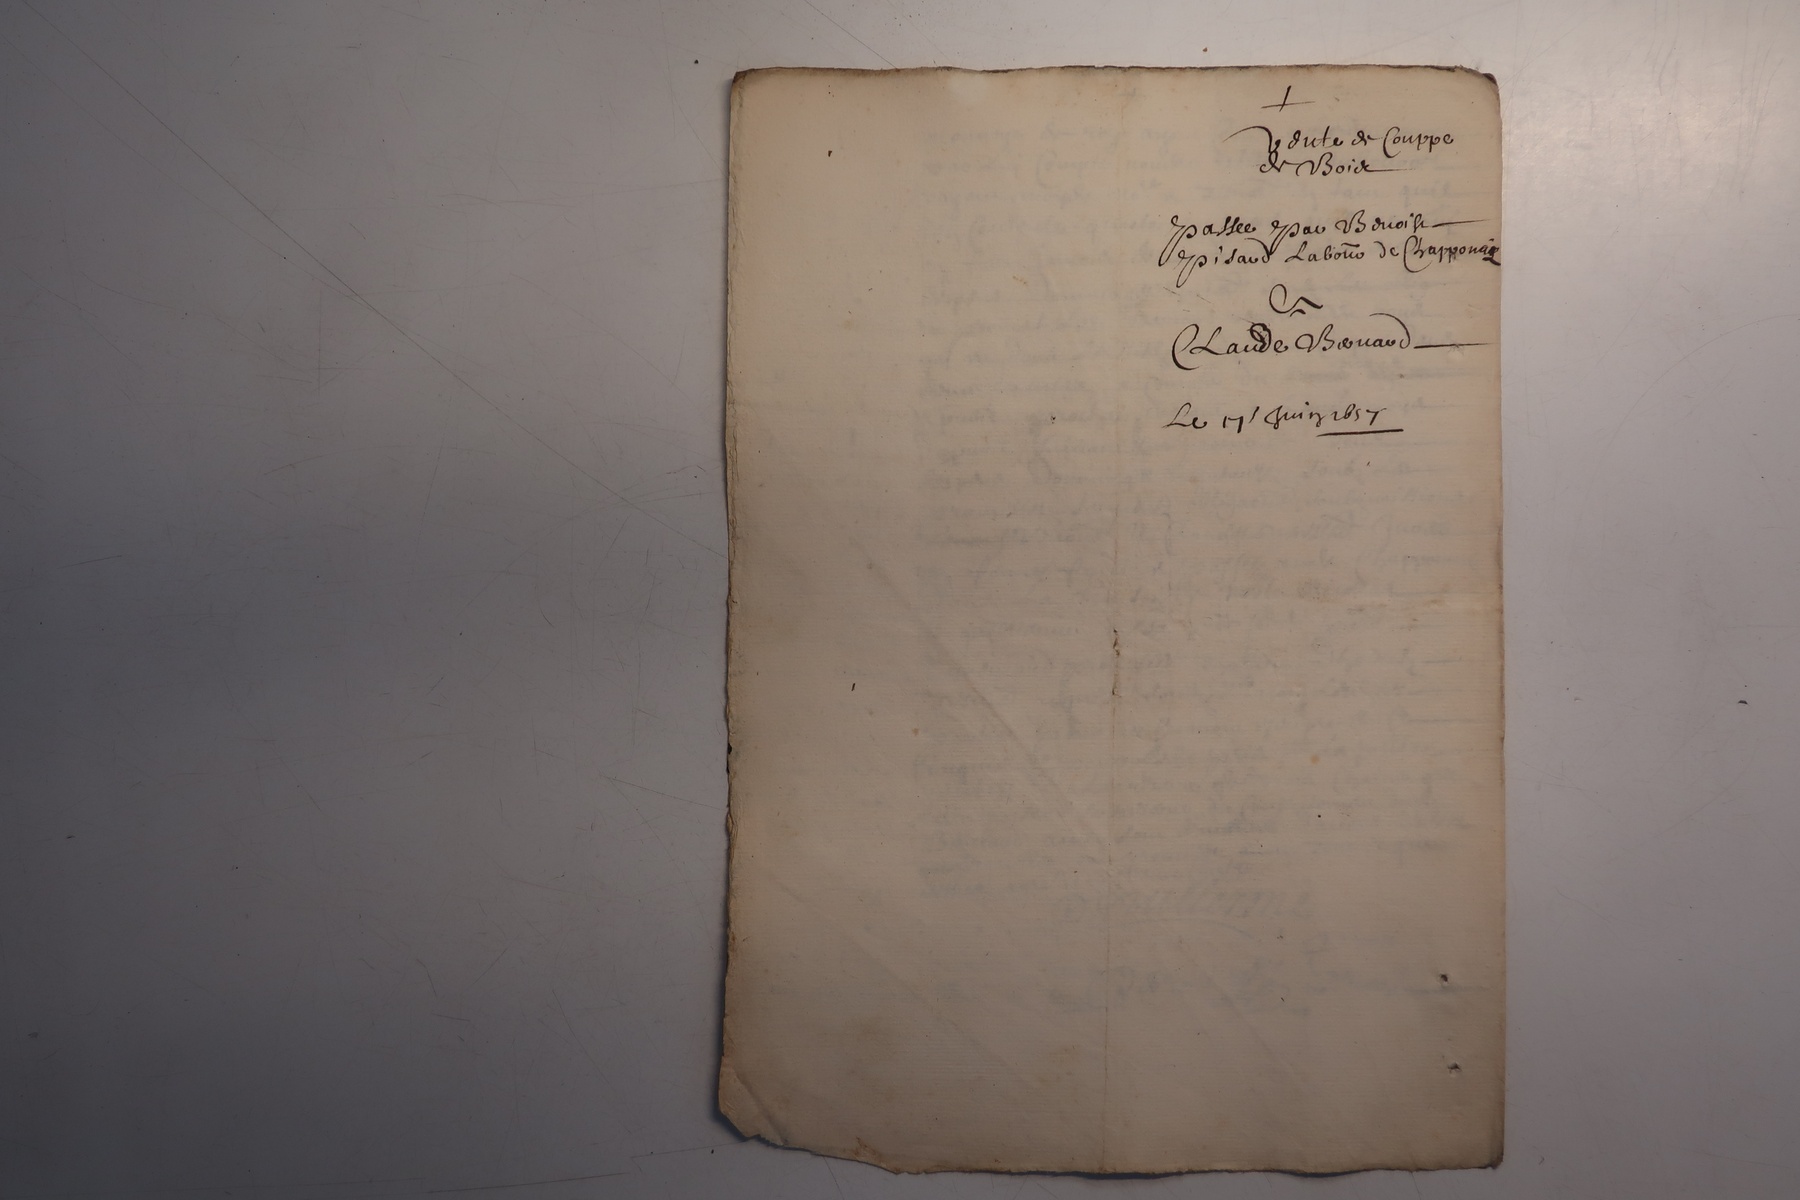 +
Vente de Couppe
de Bois
passee par Benoist
pisard Labour de Chapponay
A
Claude Bernard
Le 17e Juin 1657